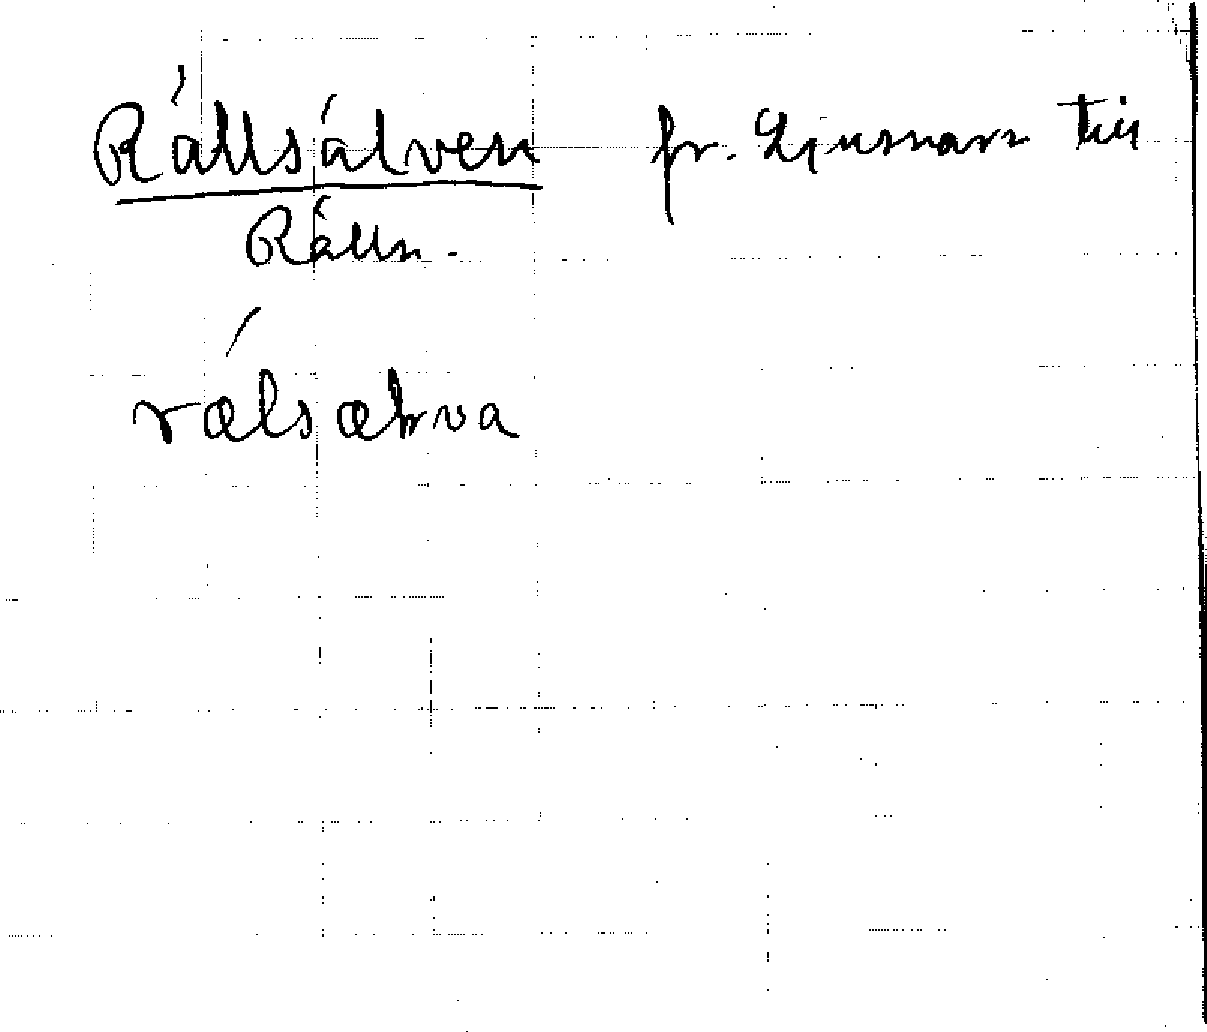 Rällsälven fr. Ljusnaren till
Rälln.
rælsæłva